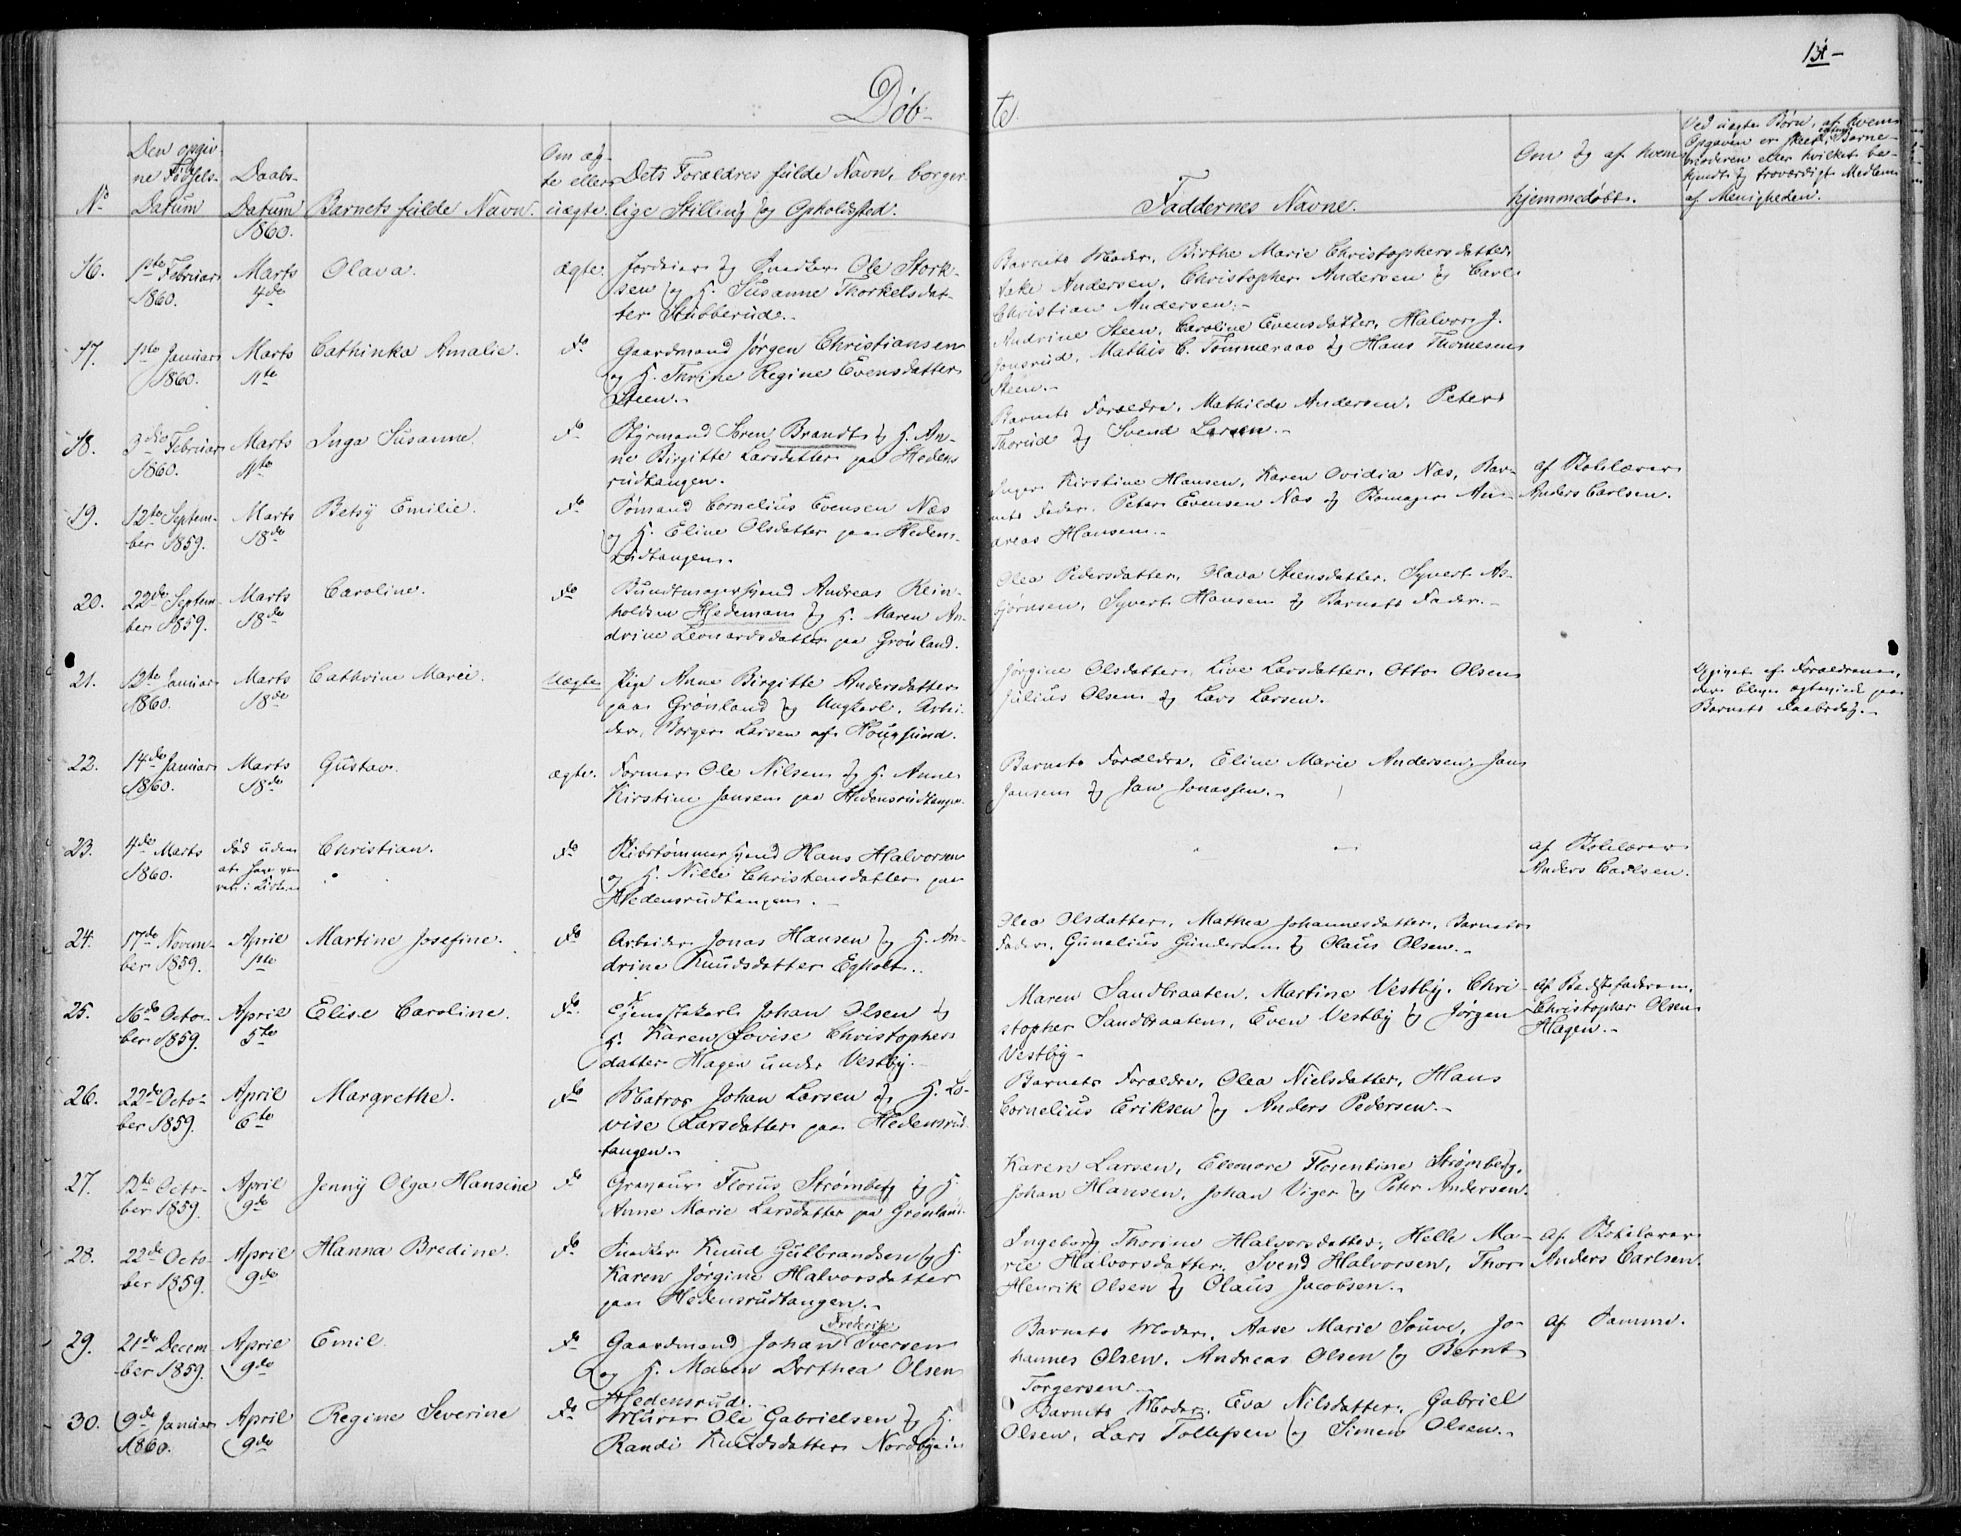 131 -
Døb-
te.
No
Den opgiv-
ne Fødsels-
Datum
Daabs-
Datum
1860.
Barnets fulde Navn.
Om æg-
te eller
uægte.
Dets Forældres fulde Navn, borger-
lige Stilling og Opholdsted.
Faddernes Navne.
Om og af hvem
hjemmedøbt.
Ved uægte Børn, af hvem
Opgaven er skeet, Barne-
moderen eller hvilket be-
kjendt og troværdigt Medlem
af Menigheden.
16.
1ste Februar
1860.
Marts
4de
Olava.
ægte.
Jordeier og Snedker Ole Stork-
sen og H. Susanne Thorkelsdat-
ter Stubberud.
Barnets Moder, Birthe Marie Christophersdatter
Andersen, Christopher Andersen og Carl
Christian Andersen.
17.
1ste Januar
1860.
Marts
11te
Cathinka Amalie.
do
Gaardmand Jørgen Christiansen
og H. Thrine Regine Evensdatter
Steen.
Andrine Steen, Caroline Evensdatter, Halvor J.
Jonsrud, Mathis C. Tømmeraas og Hans Thomesen
Steen.
18.
3die Februar
1860.
Marts
11te
Inga Susanne.
do
Styrmand Søren Brandt og H. An-
ne Birgitte Larsdatter paa Hedens
rudtangen.
Barnets Forældre, Mathilde Andersen, Peter
Thorud og Svend Larsen.
19.
12te Septem-
ber 1859.
Marts
18de
Betsy Emilie.
do
Sømand Cornelius Evensen Næs
og H. Eline Olsdatter paa Hedens-
rudtangen.
Inger Kirstine Hansen, Karen Ovidia Næs, Bar-
nets Fader, Peter Evensen Næs og An-
dreas Hansen.
af Skolelærer
Anders Carlsen.
20.
22de Septem-
ber 1859.
Marts
18de
Caroline.
do
Bundtmagersvend Andreas Rein-
holdsen Hedeman og H. Maren An-
drine Leonardsdatter paa Grønland.
Olea Pedersdatter, Olava Steensdatter, Syvert As-
bjørnsen, Syvert Hansen og Barnets Fader.
21.
12te Januar
1860.
Marts
18de
Cathrine Marie.
Uægte
Pige Anne Birgitte Andersdatter
paa Grønland og Ungkarl, Arbei-
der, Borger Larsen af Hougsund.
Jørgine Olsdatter, Live Larsdatter, Otto Olsen
Julius Olsen og Lars Larsen.
Opgivet af Forældrene,
der bleve ægteviede paa
Barnets Daabsdag.
22.
14de Januar
1860.
Marts
18de
Gustav.
ægte.
Former Ole Nilsen og H. Anne
Kirstine Jansen paa Hedensrudtangen.
Barnets Forældre, Eline Marie Andersen, Jan
Jansen og Jan Jonassen.
23.
4de Marts
1860.
død uden
at have væ-
ret i Kirken
Christian.
do
Skibstømmersvend Hans Halvorsen
og H. Nille Christensdatter paa
Hedensrudtangen.
af Skolelærer
Anders Carlsen.
24.
17de Novem-
ber 1859.
April
1ste
Martine Josefine.
do
Arbeider Jonas Hansen og H. An-
drine Knudsdatter Egholt.
Olea Olsdatter, Mathea Johannesdatter, Barnets
Fader, Gunelius Gundersen og Olaus Olsen.
25.
16de Octo-
ber 1859.
April
5te
Elise Caroline.
do
Tjenestekarl Johan Olsen og
H. Karen Lovise Christophers
datter Hagen under Vestby.
Maren Sandbraaten, Martine Vestby, Chri-
stopher Sandbraaten, Even Vestby og Jørgen
Vestby.
af Bedstefaderen,
Christopher Olsen
Hagen.
26.
22de Octo-
ber 1859.
April
6te
Margrethe.
do
Matros Johan Larsen og H. Lo-
vise Larsdatter paa Hedensrud
tangen.
Barnets Forældre, Olea Nielsdatter, Hans
Cornelius Eriksen og Anders Pedersen.
27.
12te Octo-
ber 1859.
April
9de
Jenny Olga Hansine
do
Graveur Florus Strømberg og H.
Anne Marie Larsdatter paa Grønland.
Karen Larsen, Eleonore Florentine Strømberg,
Johan Hansen, Johan Viger og Peter Andersen.
28.
22de Octo-
ber 1859.
April
9de
Hanna Bredine.
do
Snedker Knud Gulbrandsen og H.
Karen Jørgine Halvorsdatter
paa Hedensrudtangen.
Ingeborg Thorine Halvorsdatter, Helle Ma-
rie Halvorsdatter, Svend Halvorsen, Thor
Henrik Olsen og Olaus Jacobsen.
af Skolelærer
Anders Carlsen.
29.
21de Decem
ber 1859.
April
9de
Emil.
do
Gaardmand Johan Frederik Iversen
og H. Maren Dorthea Olsen
Hedensrud.
Barnets Moder, Aase Marie Souve, Jo-
hannes Olsen, Andreas Olsen og Bernt
Torgersen.
af Samme.
30.
9de Januar
1860.
April
9de
Regine Severine
do
Murer Ole Gabrielsen og H.
Randi Knudsdatter Nordbyeie
Barnets Moder, Eva Nilsdatter, Gabriel
Olsen, Lars Tollefsen og Simen Olsen.